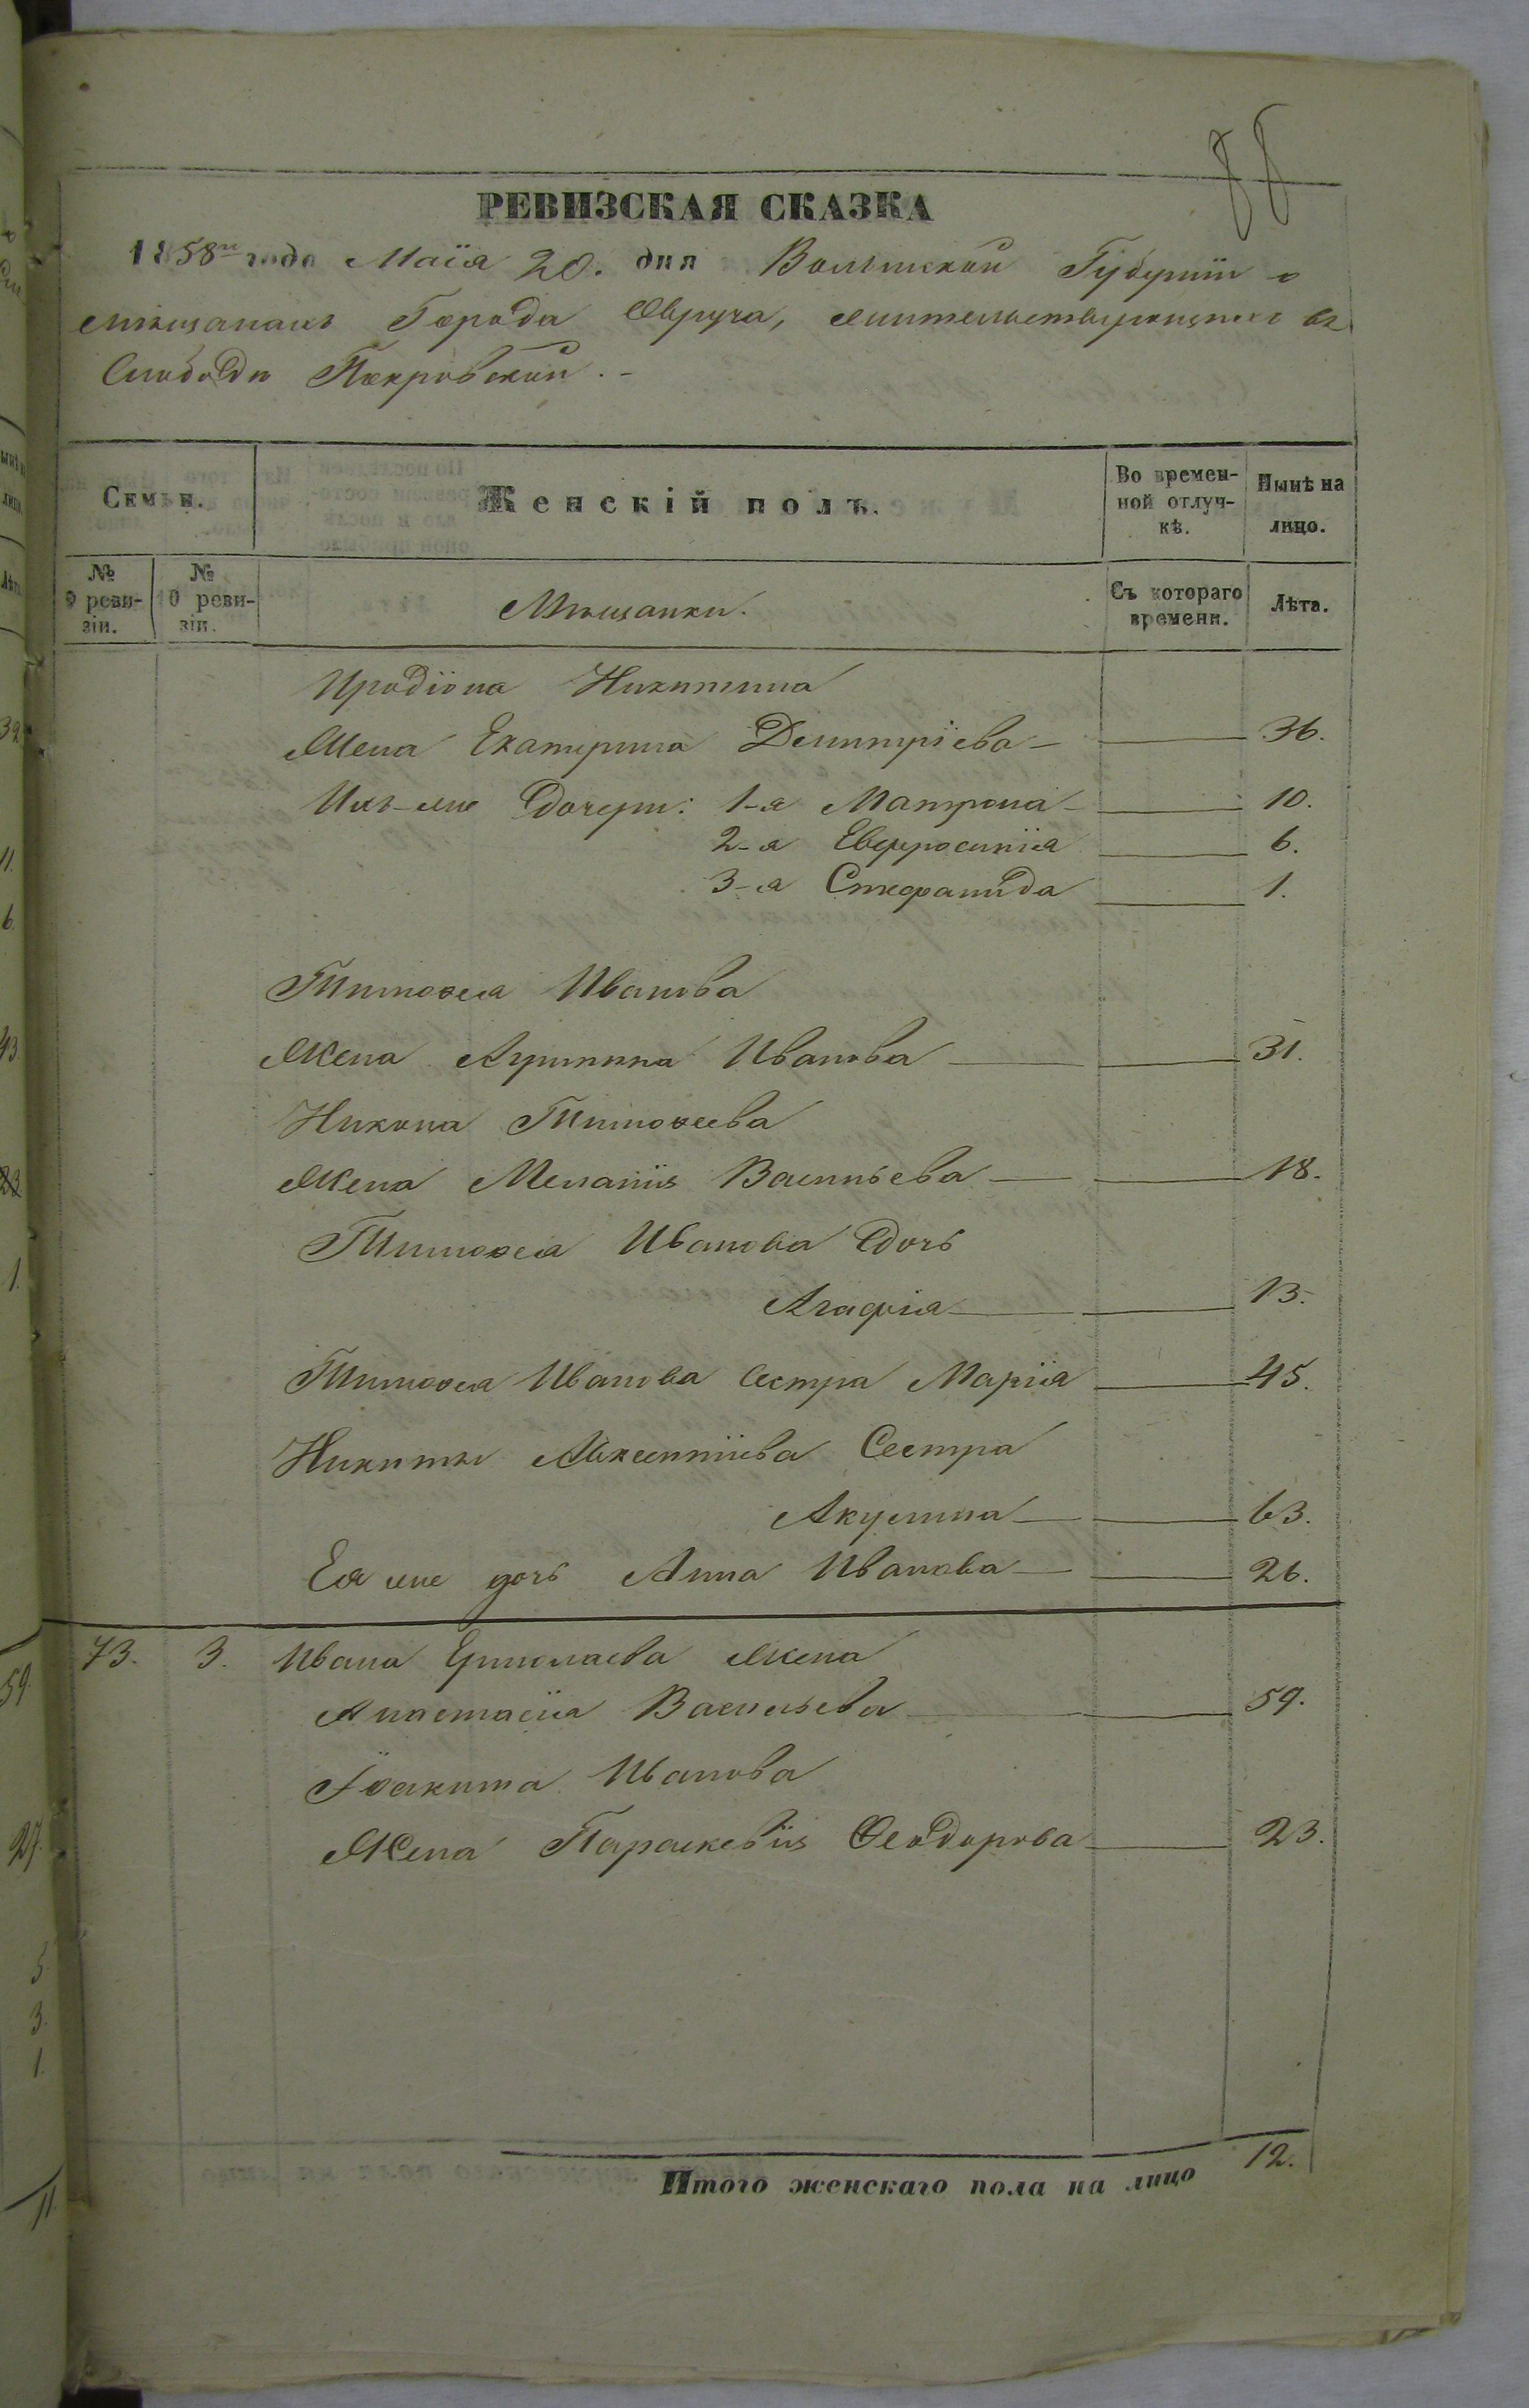 88
РЕВИЗСКАЯ СКАЗКА
1858го года Маія 20. дня Волынской Губерніи о
мѣщанахъ Города Овруча, жительствующихъ въ
Слободѣ Покровской.-
Семьи.
Женскій полъ.
Во времен-
ной отлуч-
кѣ.
Нынѣ на
лицо.
№
9 реви-
зіи.
№
10 реви-
зіи.
Мѣщанки.
Съ котораго
времени.
Лѣта.
Иродіона Никитина
Жена Екатерина Димитріева — 36.
Ихъ-же дочери: 1-я Матрона — 10.
2-я Евфросинія — 6.
3-я Стефанида — 1.
Тимофея Иванова
Жена Иванова — 31.
Никона Тимофеева
Жена Меланія Васильева — 18.
Тимофея Иванова дочь
Агафія — 13.
Тимофея Иванова сестра Марія — 45.
Никиты Авксентіева Сестра
Акулина — 63.
Ея же дочь Анна Иванова — 26.
73. 3. Ивана Ермолаева жена
Анастасія Васильева — 59.
Іоакима Иванова
Жена Параскевія Ѳеодорова — 23.
Итого женскаго пола на лицо 12.